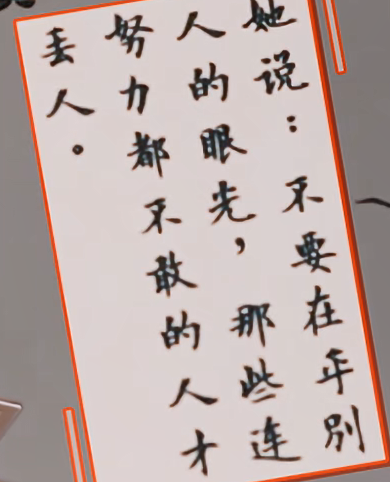 她说：不要在乎别
人的眼光，那些连
努力都不敢的人才
丢人。